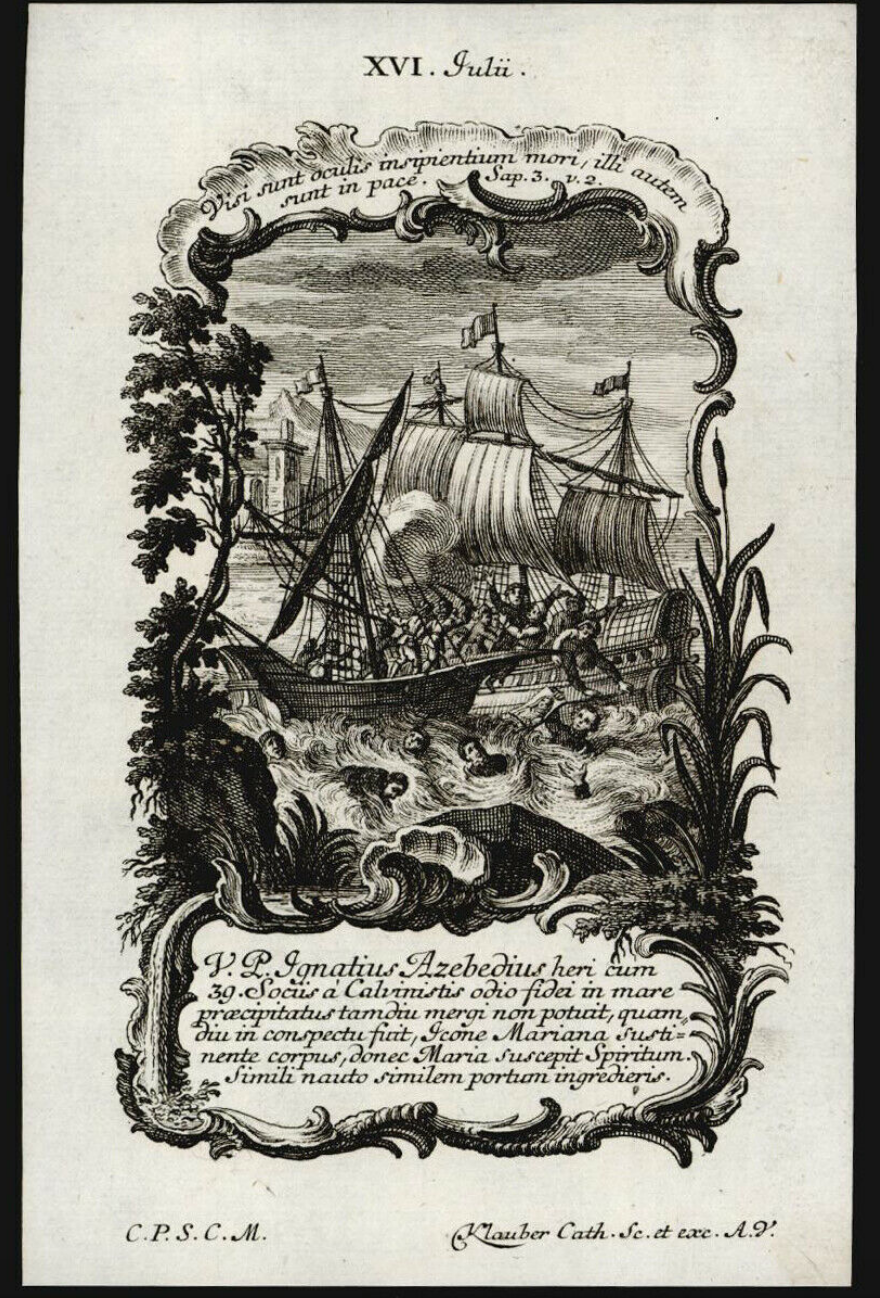 XVI. Julii.
Visi sunt oculis insipientium mori, illi autem
sunt in pace. Sap. 3. v. 2.
V. P. Ignatius Azebedius heri cum
39. Sociis à Calvinistis odio fidei in mare
præcipitatus tamdiu mergi non potuit, quam„
diu in conspectu fuit, Icone Mariana susti=
nente corpus, donec Maria suscepit Spiritum.
Simili nauto similem portum ingredieris.
C. P. S. C. M.
Klauber Cath. Sc. et exc. A. V.